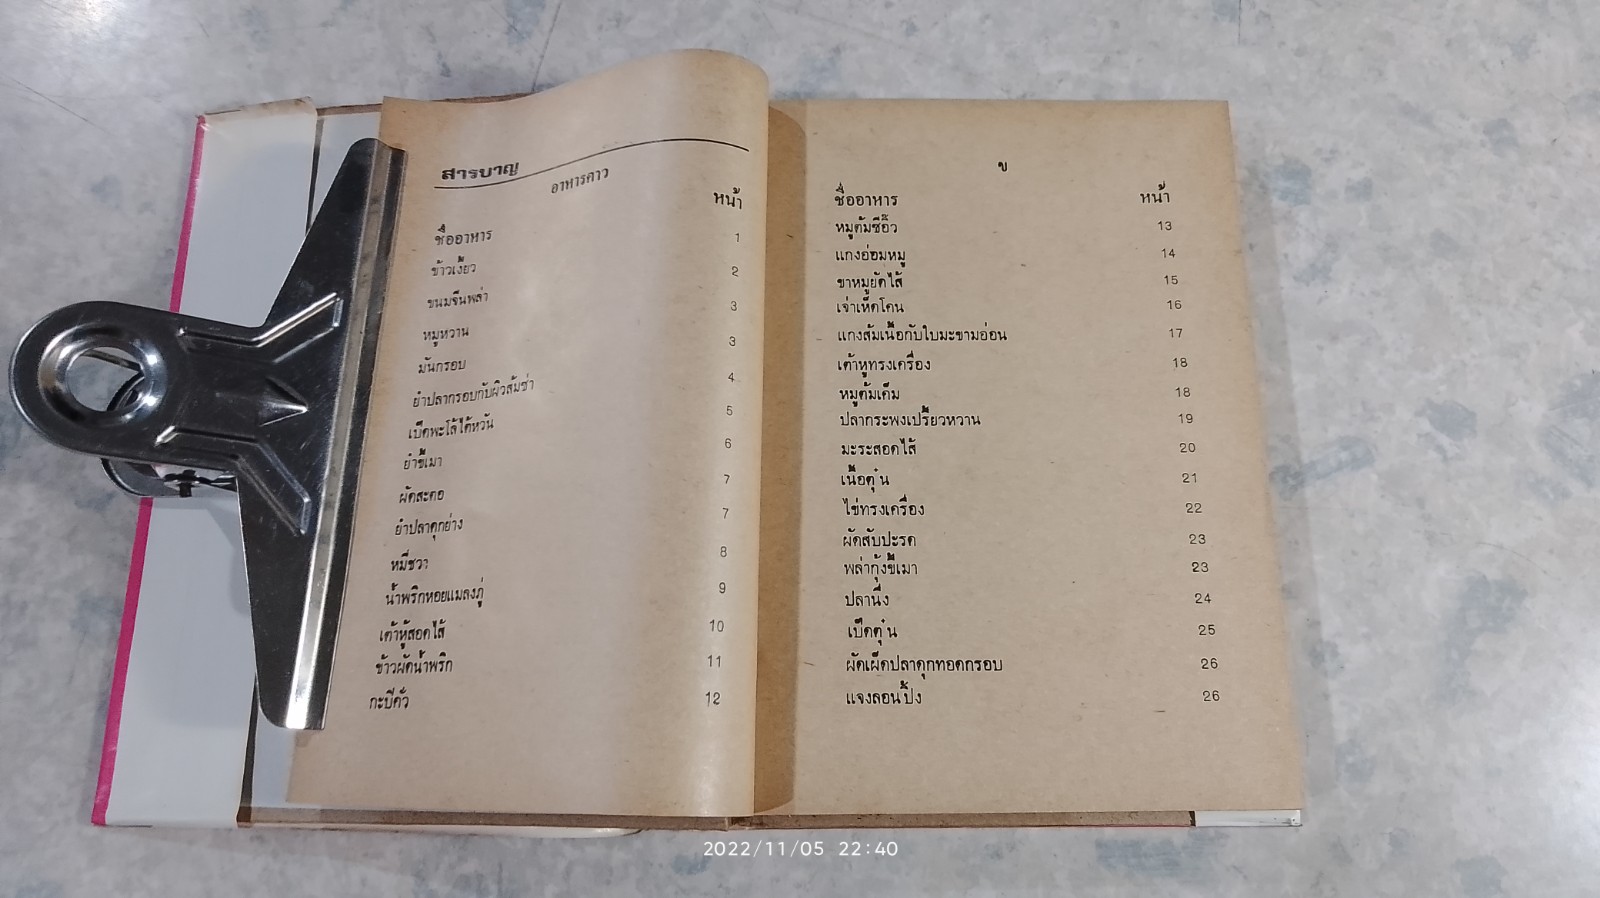 สารบาญ
อาหารคาว
ชื่ออาหาร หน้า
ข้าวเงี้ยว 1
ขนมจีนพล่า 2
หมูหวาน 3
มันกรอบ 3
ยำปลากรอบกับผิวส้มซ่า 4
เป็ดพะโล้ไต้หวัน 5
ยำขี้เมา 6
ผัดสะตอ 7
ยำปลาดุกย่าง 7
หมี่ชวา 8
น้ำพริกหอยแมลงภู่ 9
เต้าหู้สอดไส้ 10
ข้าวผัดน้ำพริก 11
กะปิคั่ว 12
ข
ชื่ออาหาร หน้า
หมูต้มซีอิ๊ว 13
แกงอ่อมหมู 14
ขาหมูยัดไส้ 15
เจ่าเห็ดโคน 16
แกงส้มเนื้อกับใบมะขามอ่อน 17
เต้าหูทรงเครื่อง 18
หมูต้มเค็ม 18
ปลากระพงเปรี้ยวหวาน 19
มะระสอดไส้ 20
เนื้อตุ๋น 21
ไข่ทรงเครื่อง 22
ผัดสับปะรด 23
พล่ากุ้งขี้เมา 23
ปลานึ่ง 24
เป็ดตุ๋น 25
ผัดเผ็ดปลาดุกทอดกรอบ 26
แจงลอนปิ้ง 26
2022/11/05 22:40